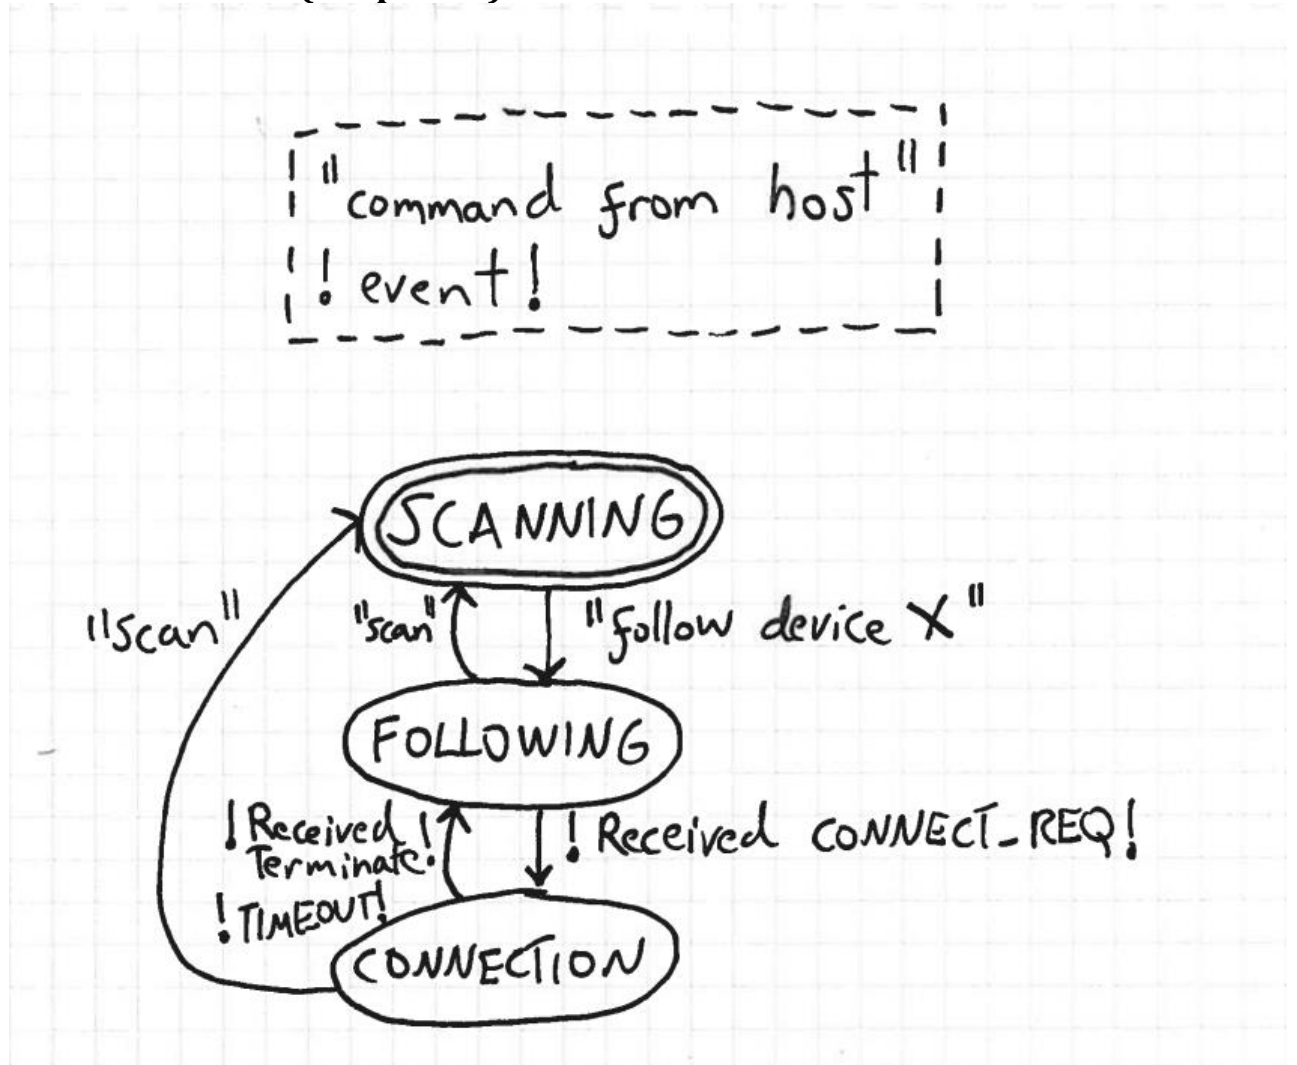 "command from host"
! event!
SCANNING
"scan"
"scan"
"follow device X"
FOLLOWING
! Received
Terminate!
! TIMEOUT!
! Received CONNECT_REQ!
CONNECTION